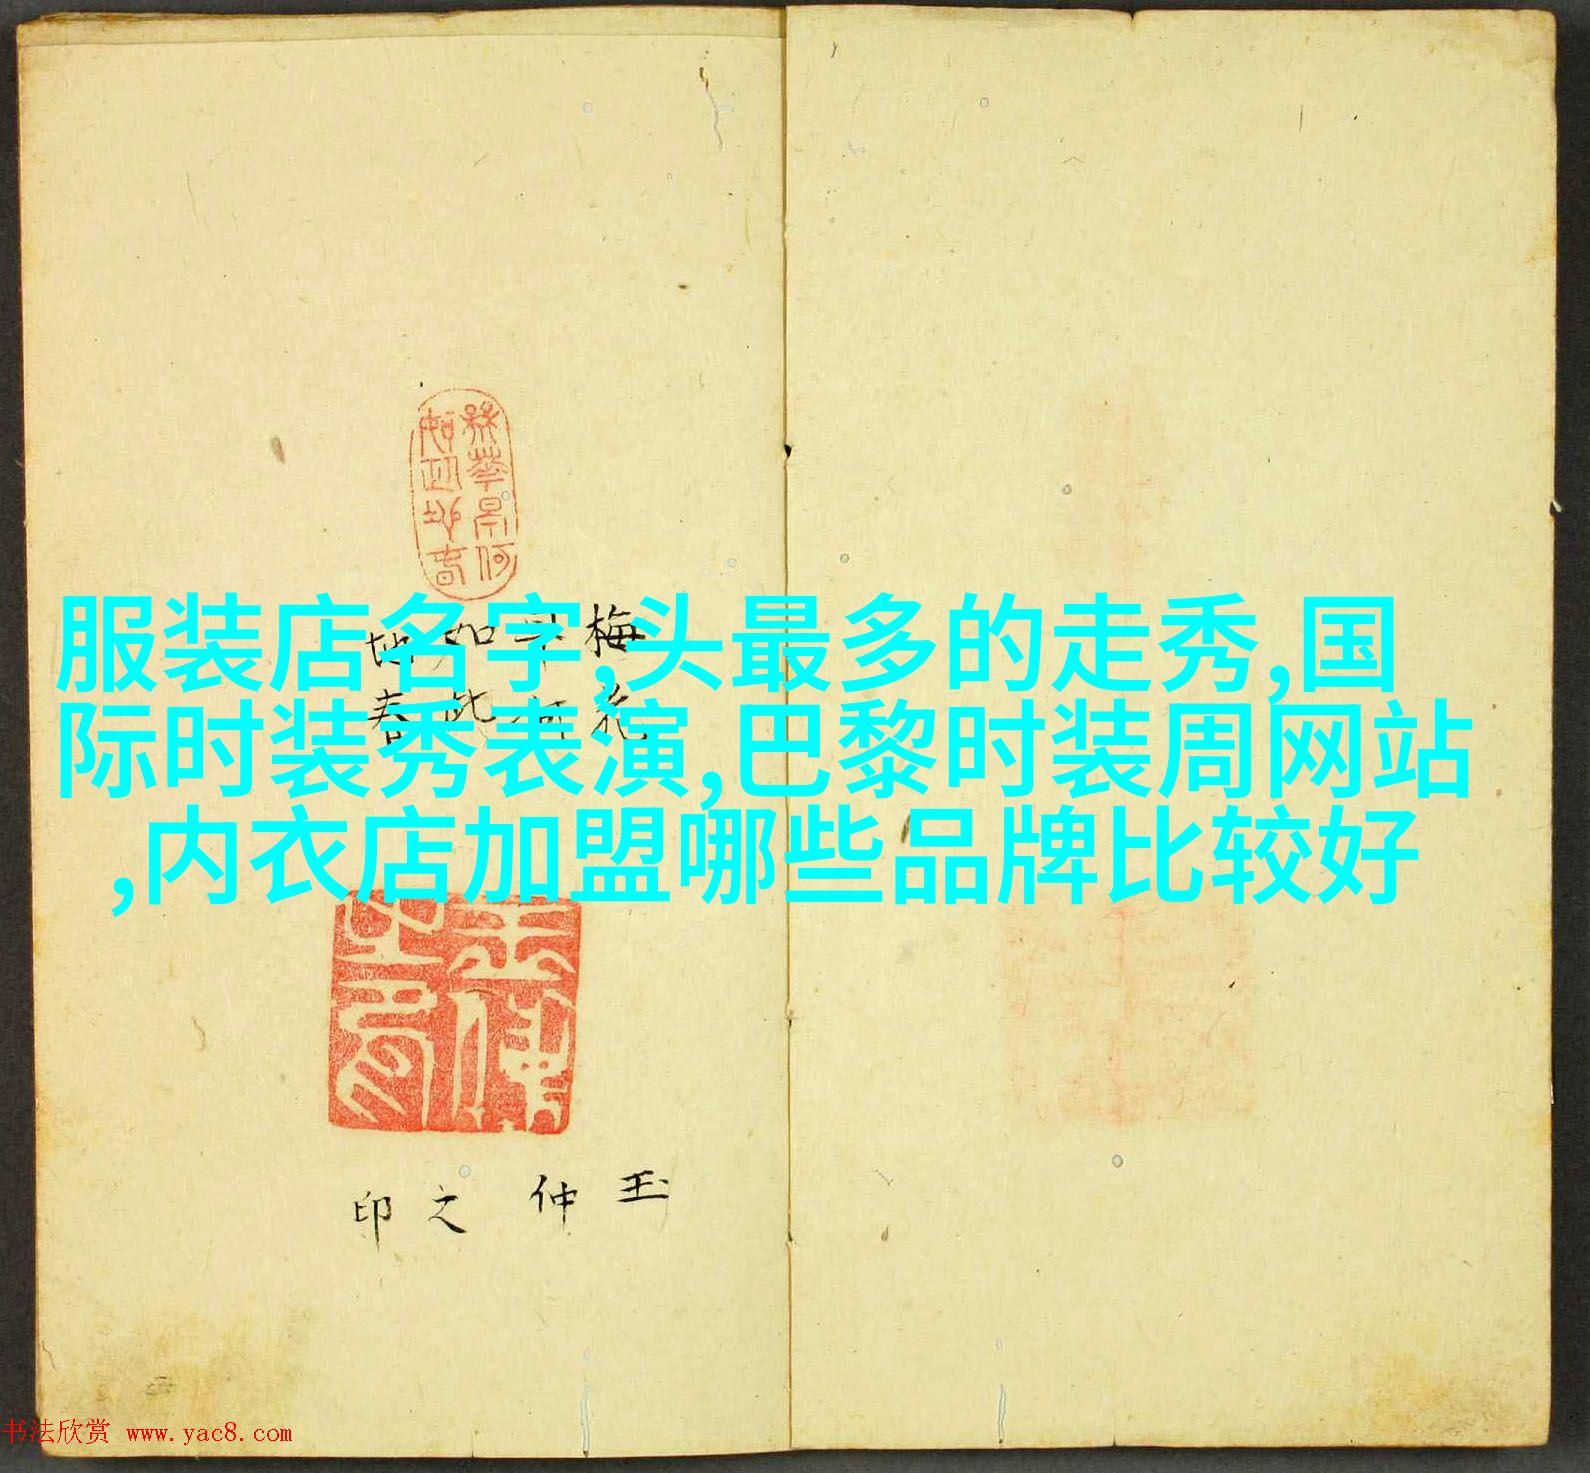 服装店名字,头最多的走秀,国
际时装秀表演,巴黎时装周网站
,内衣店加盟哪些品牌比较好
梅花
如此
地春
玉仲之印
书法欣赏 www.yac8.com